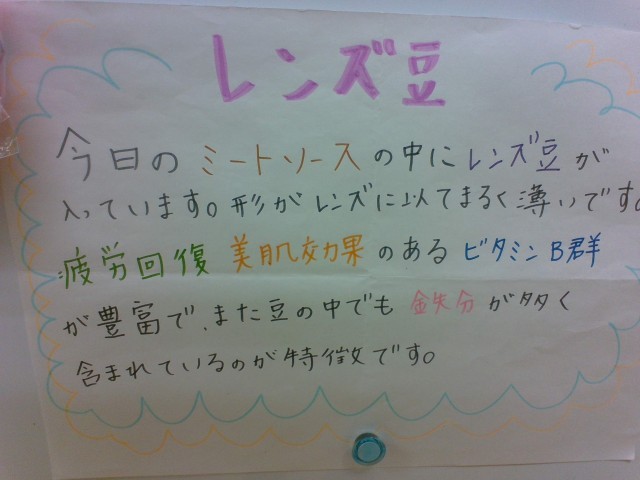 レンズ豆
今日のミートソースの中にレンズ豆が
入っています。形がレンズに似てまるく薄いです。
疲労回復 美肌効果のあるビタミンB群
が豊富で、また豆の中でも鉄分が多く
含まれているのが特徴です。